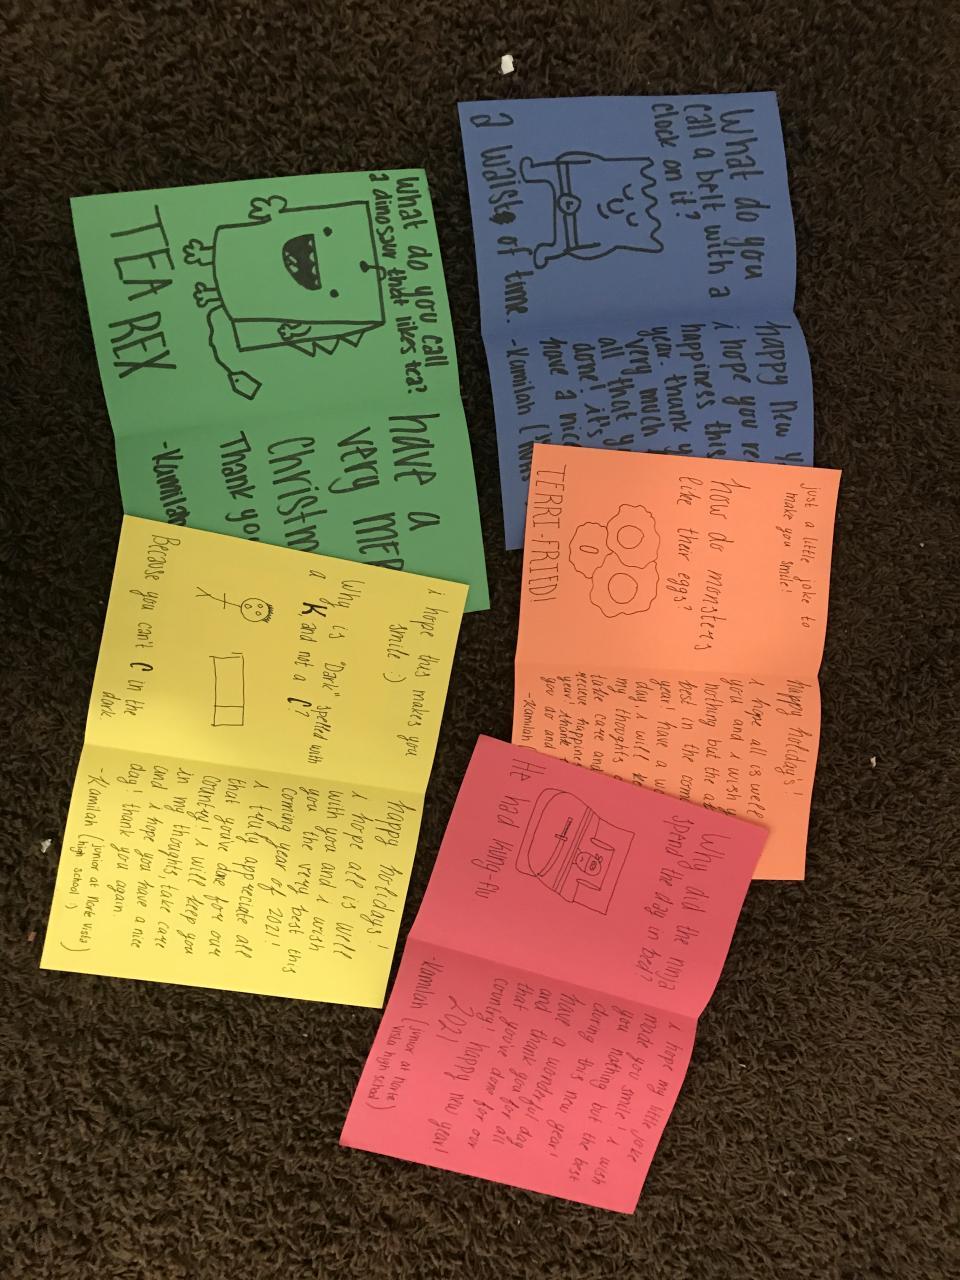 What do you
call a belt with a
clock on it?
a waist of time.
happy new y
i hope you re
happines this
year. thank y
very much
all that y
done! it's
have a nice
-Kamilah (
What do you call
a dinosaur that likes tea?
TEA REX
have a
very MER
Christm
Thank yo
-Kamilah
just a little joke to
make you smile!
how do monsters
like their eggs?
TERRI-FRIED!
happy holiday's!
i hope all is well
you and i wish y
nothing but the
best in the com
year! have a w
day, i will
my thoughts
take care and
recieve happine
year thank
you do and
-Kamilah
i hope this makes you
smile :)
Why is "Dark" spelled with
a K and not a C?
Because you can't C in the
dark.
happy holidays!
i hope all is well
with you and i wish
you the very best this
coming year of 2021!
i truly appreciate all
that you've done for our
country! i will keep you
in my thoughts, take care
and i hope you have a nice
day! thank you again.
-Kamilah (junior at Norte Vista)
(high school :)
Why did the ninja
spend the day in bed?
He had kung-flu.
i hope my little joke
made you smile! i wish
you nothing but the best
during this new year!
have a wonderful day
and thank you for all
that you've done for our
country! happy new year!
2021
-Kamilah (junior at Norte
Vista high school)